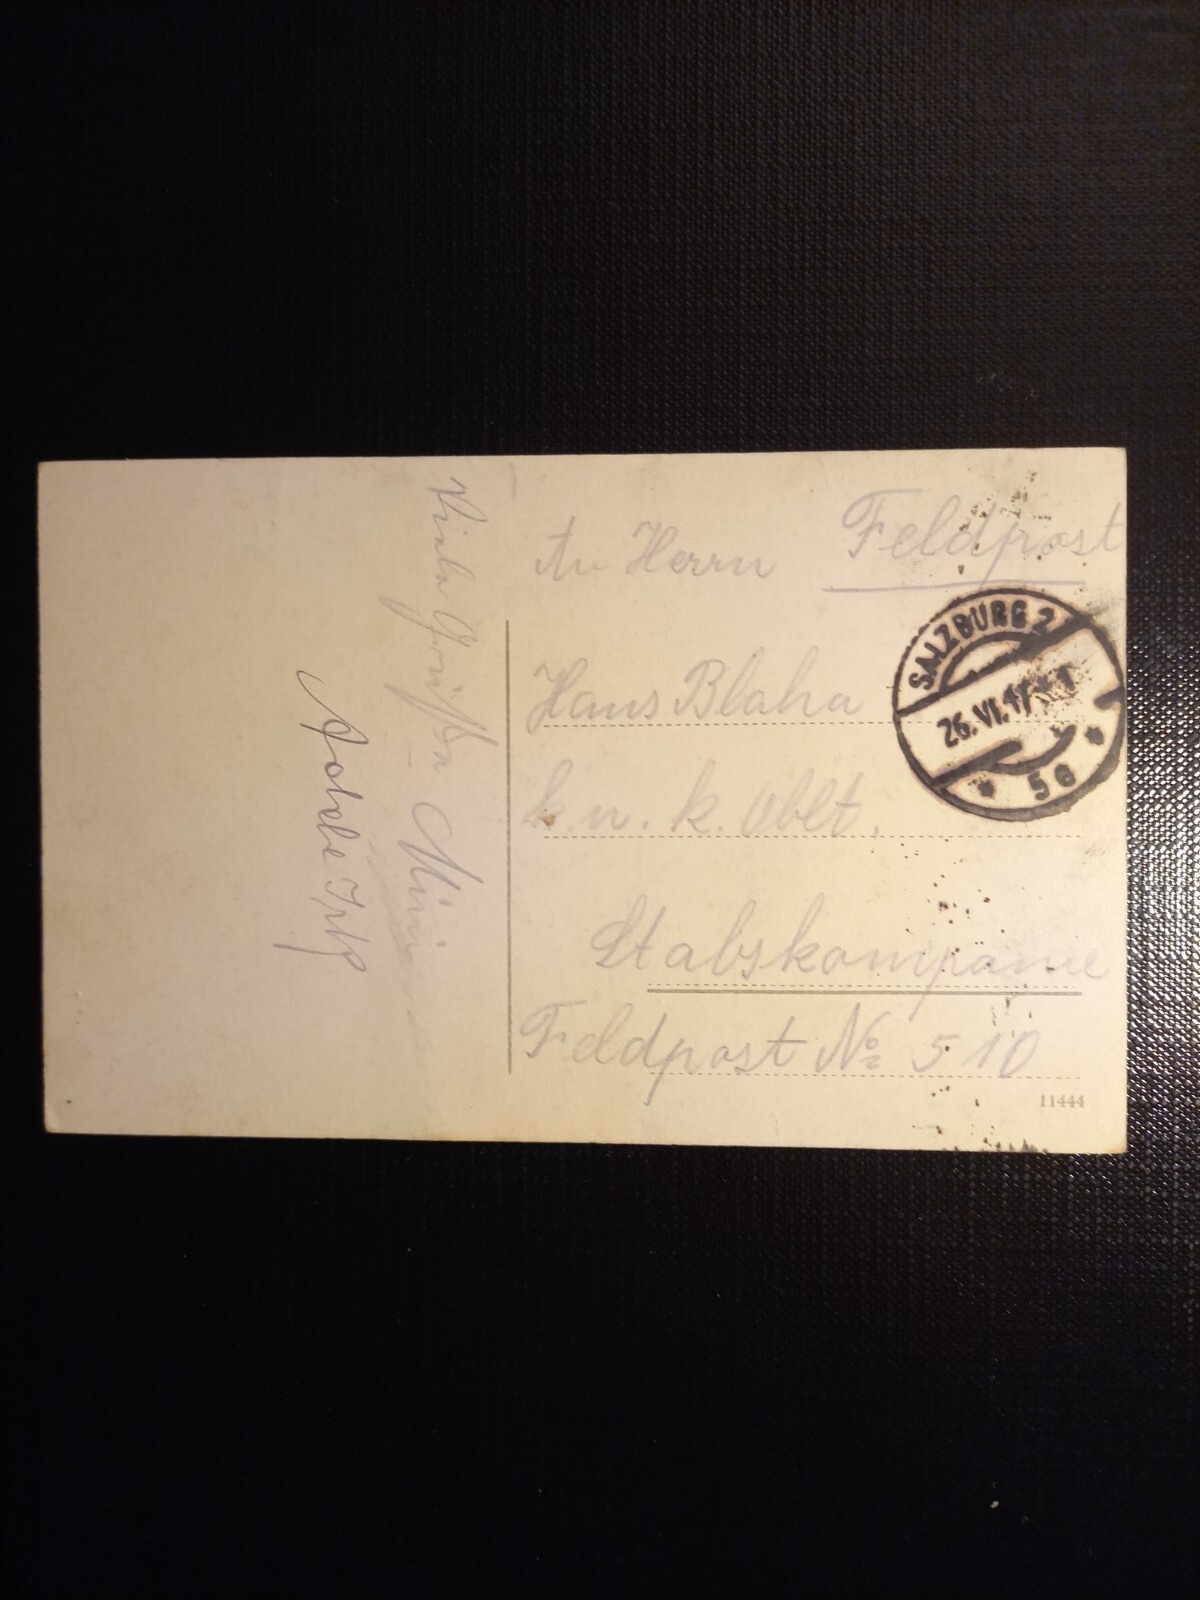 Feldpost
An Herrn
Hans Blaha
k. u. k. Oblt.
Stabskompanie
Feldpost No 510
SALZBURG 2
26. VI. 17
5e
11444
Viele Grüße